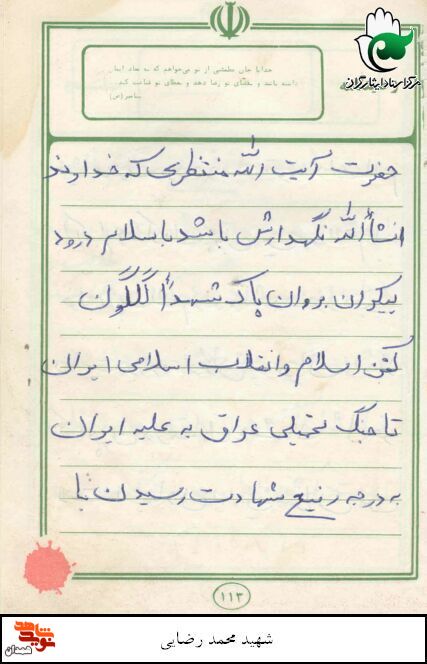 خدایا جان مطمئنی از تو می‌خواهم که به معاد ایمان
داشته باشد و به قضای تو رضا دهد و به عطای تو قناعت کند
پیامبر (ص)
مرکز اسناد ایثارگران
حضرت آیت الله منتظری که خداوند
انشأالله نگهدارش باشد با سلام درود
بیکران بروان پاک شهدأ گلگون
کفن اسلام و انقلاب اسلامی ایران
تا جنگ تحمیلی عراق به علیه ایران
به درجه رفیع شهادت رسیدن با
۱۱۳
شاهد
نوید
همدان
شهید محمد رضایی